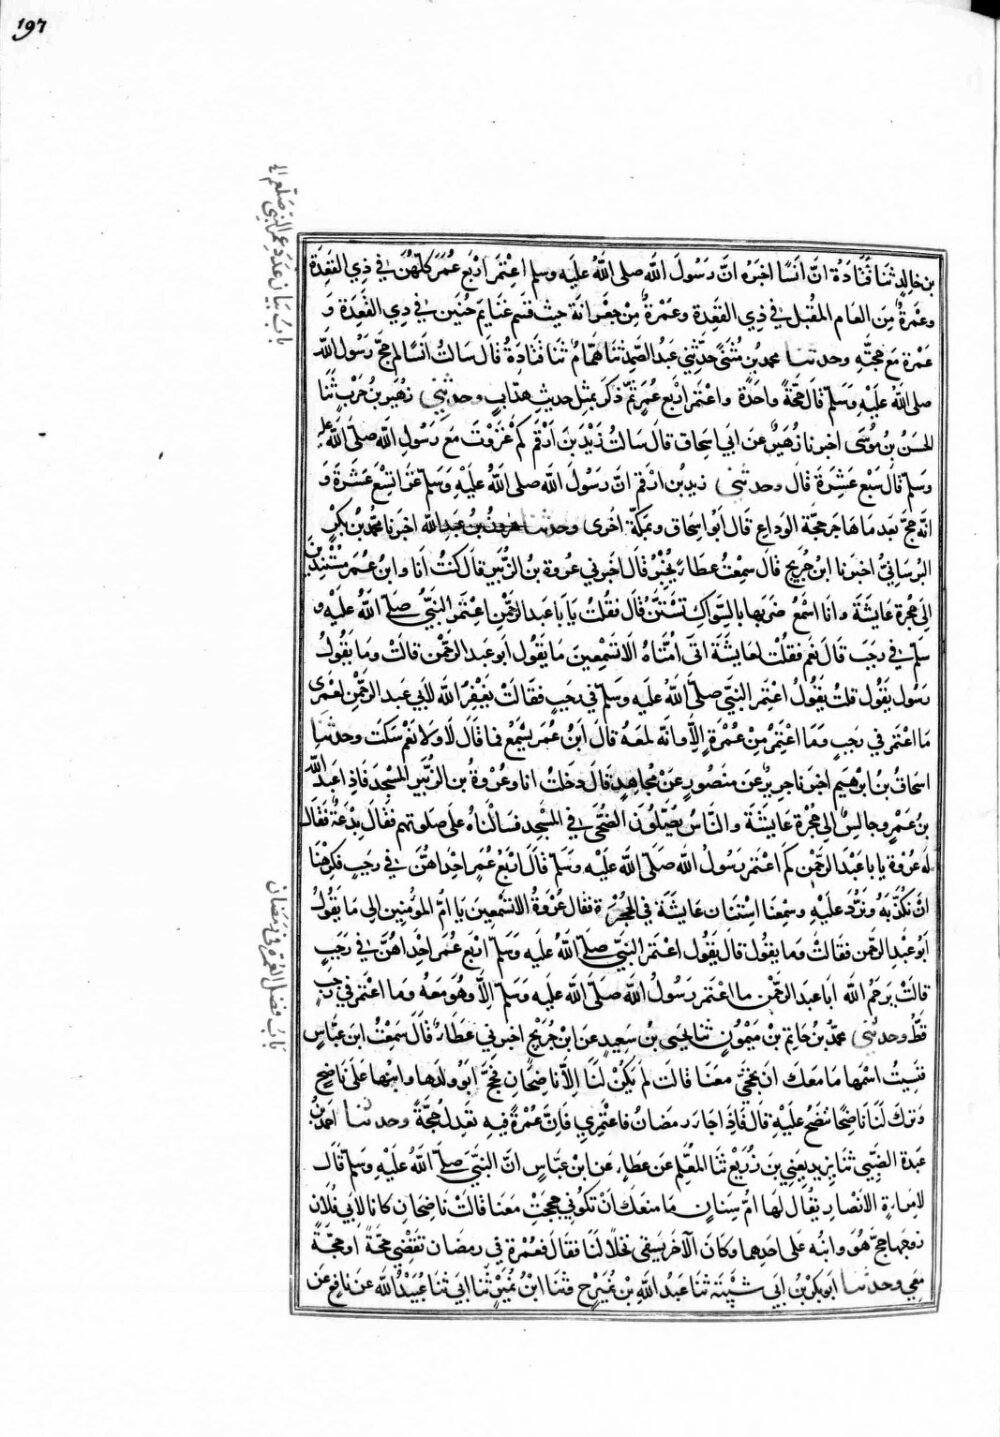 ١٩٧
باب بيان عدد عمر النبي صلعم
بن خالد ثنا قتادة ان انسا اخبره ان رسول الله صلى الله عليه وسلم اعتمر اربع عمر كلهن في ذي القعدة
وعمرة من العام المقبل في ذي القعدة وعمرة من جعرانة حيث قسم غنايم حنين في ذي القعدة و
عمرة مع حجته وحدثنا محمد بن مثنى حدثني عبد الصمد ثنا همام ثنا قتادة قال سالت انسا لم حج رسول الله
صلى الله عليه وسلم قال حجة واحدة واعتمر اربع عمر ثم ذكر بمثل حديث هداب وحدثني زهير بن حرب ثنا
الحسن بن موسى اخبرنا زهير عن ابي اسحاق قال سالت زيد بن ارقم كم غزوت مع رسول الله صلى الله عليه
وسلم قال سبع عشرة قال وحدثني زيد بن ارقم ان رسول الله صلى الله عليه وسلم غزا تسع عشرة و
انه حج بعد ما هاجر حجة الوداع قال ابو اسحاق وبمكة اخرى وحدثنا هرون بن عبد الله اخبرنا محمد بن بكر
البرساني اخبرنا ابن جريج قال سمعت عطاء يخبر قال اخبرني عروة بن الزبير قال كنت انا وابن عمر مستندين
الى حجرة عايشة وانا اسمع ضربها بالسواك تستن قال فقلت يا با عبد الرحمن اعتمر النبي صلى الله عليه و
سلم في رجب قال نعم فقلت لعايشة اى امتاه الا تسمعين ما يقول ابو عبد الرحمن قالت وما يقول
رسول يقول قلت يقول اعتمر النبي صلى الله عليه وسلم في رجب فقالت يغفر الله لابي عبد الرحمن لعمرى
ما اعتمر في رجب وما اعتمر من عمرة الا وانه لمعه قال ابن عمر يسمع فما قال لا ولا نعم سكت وحدثنا
اسحاق بن ابرهيم اخبرنا جرير عن منصور عن مجاهد قال دخلت انا وعروة بن الزبير المسجد فاذا عبد الله
بن عمر جالس الى حجرة عايشة والناس يصلون الضحى في المسجد فسالناه على صلوتهم فقال بدعة فقال
له عروة يا با عبد الرحمن كم اعتمر رسول الله صلى الله عليه وسلم قال اربع عمر احداهن في رجب فكرهنا
ان نكذبه ونرد عليه وسمعنا استنان عايشة في الحجرة فقال عروة الا تسمعين يا ام المؤمنين الى ما يقول
ابو عبد الرحمن فقالت وما يقول قال يقول اعتمر النبي صلى الله عليه وسلم اربع عمر احداهن في رجب
قالت يرحم الله ابا عبد الرحمن ما اعتمر رسول الله صلى الله عليه وسلم الا وهو معه وما اعتمر في رجب
قط وحدثني محمد بن حاتم بن ميمون ثنا يحيى بن سعيد عن ابن جريج اخبرني عطاء قال سمعت ابن عباس
باب فضل العمرة في رمضان
فنسيت اسمها ما معك ان تحجي معنا قالت لم يكن لنا الا ناضحان فحج ابو ولدها وابنها على ناضح
وترك لنا ناضحا ننضح عليه قال فاذا جاء رمضان فاعتمري فان عمرة فيه تعدل حجة وحدثنا احمد بن
عبدة الضبي ثنا يزيد يعني بن زريع ثنا المعلم عن عطاء عن ابن عباس ان النبي صلى الله عليه وسلم قال
لامراة الانصار يقال لها ام سنان ما منعك ان تكوني حججت معنا قالت ناضحان كانا لابي فلان
زوجها حج هو وابنه على احدهما وكان الاخر يسقى نخلا لنا فقال فعمرة في رمضان تقضي حجة او حجة
معي وحدثنا ابو بكر بن ابي شيبة ثنا عبد الله بن نمير ح وثنا ابن نمير ثنا ابي ثنا عبيد الله عن نافع عن